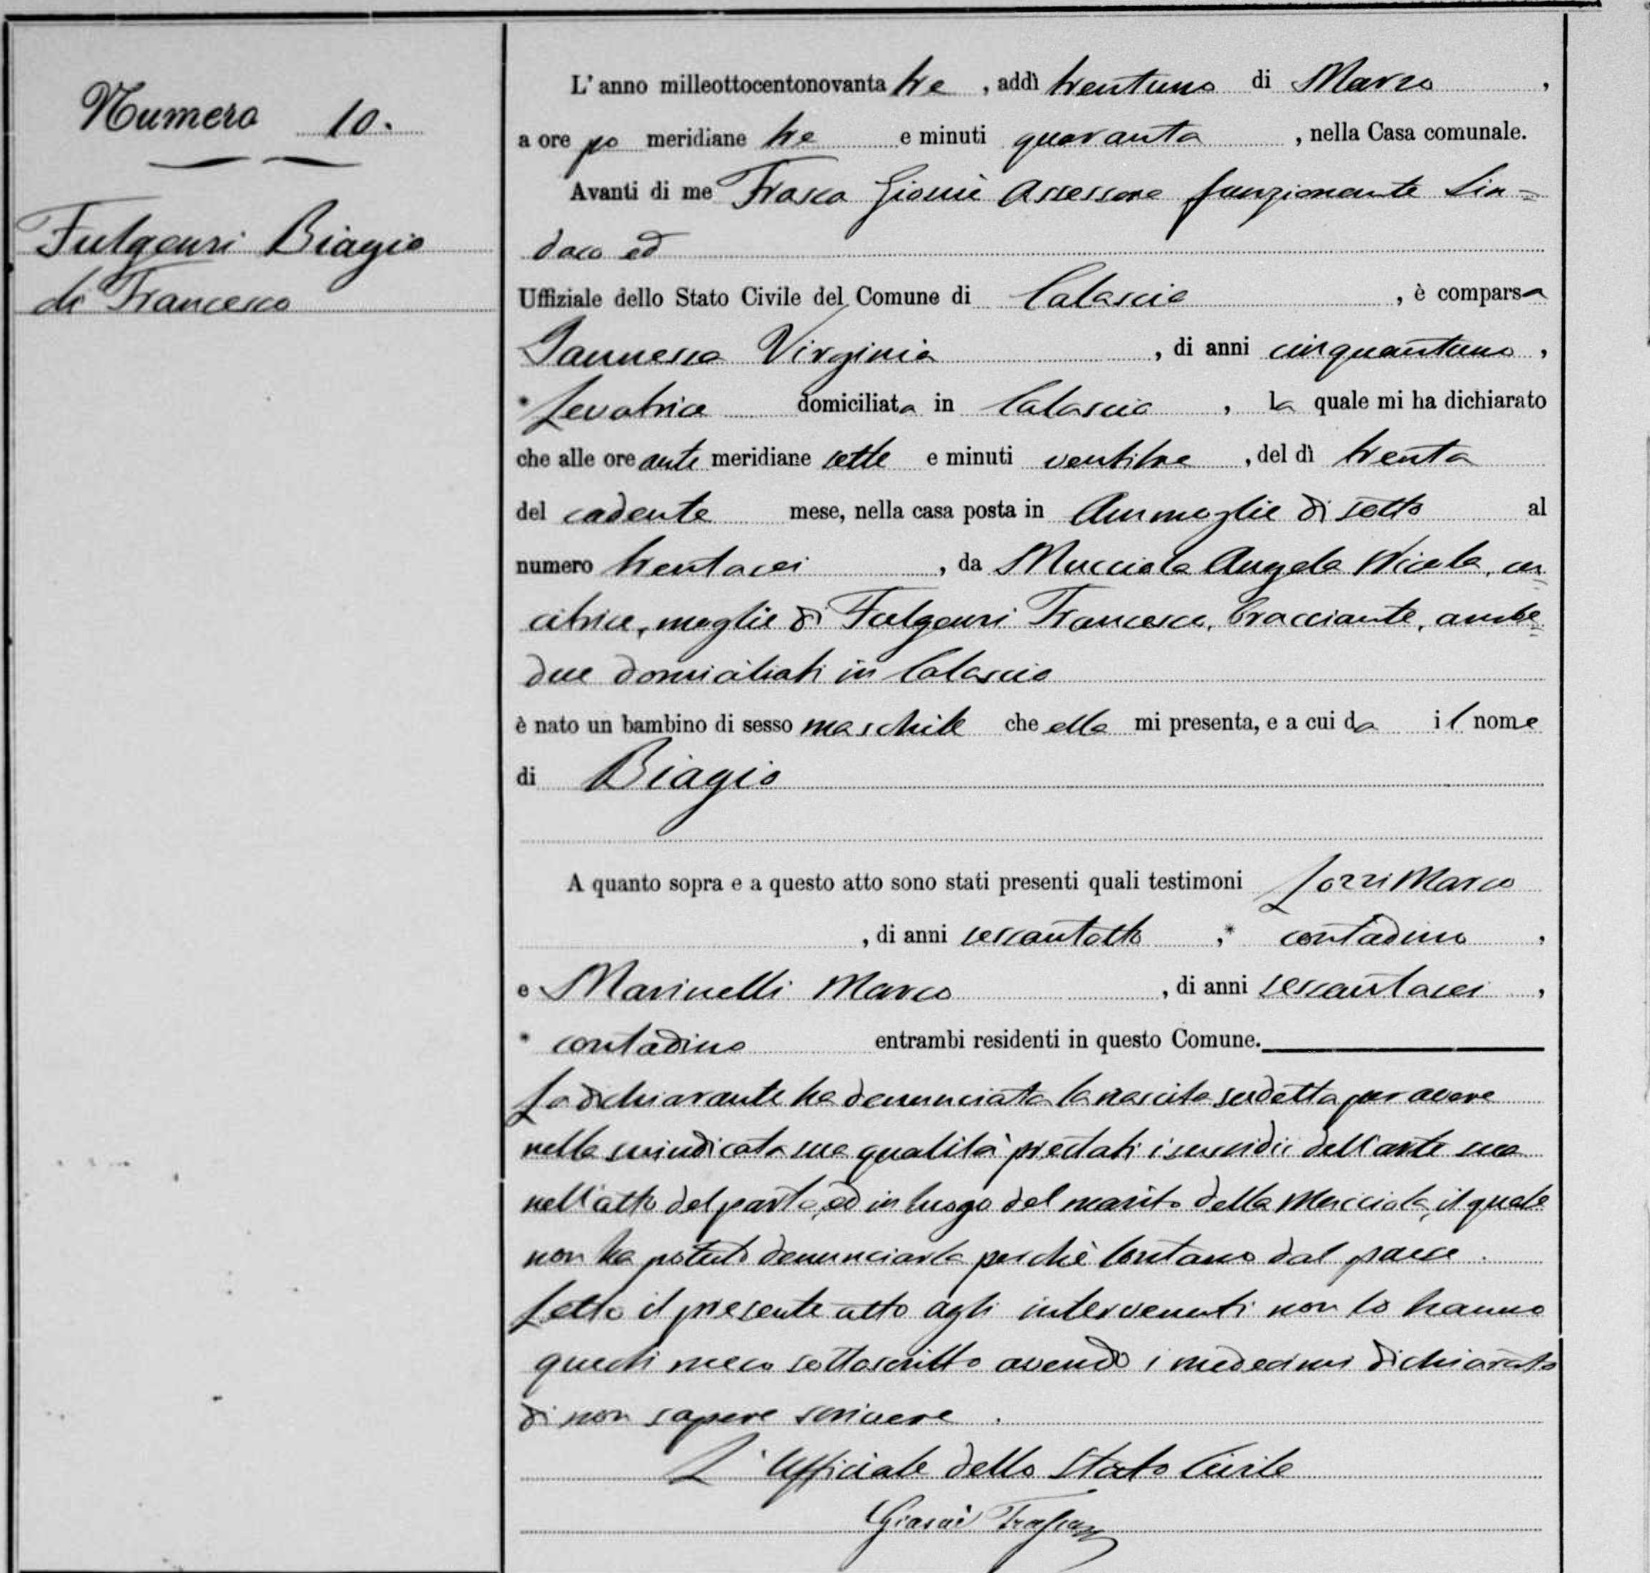 Numero 10.
Fulgenzi Biagio
di Francesco
L'anno milleottocentonovanta tre, addì trentuno di Marzo,
a ore po meridiane tre e minuti quaranta, nella Casa comunale.
Avanti di me Frasca Giosuè Assessore funzionante Sin=
daco ed
Uffiziale dello Stato Civile del Comune di Calascio, è comparsa
Iannessa Virginia, di anni cinquantuno,
* Levatrice domiciliata in Calascio, la quale mi ha dichiarato
che alle ore ante meridiane sette e minuti ventitre, del dì trenta
del cadente mese, nella casa posta in di sotto al
numero trentasei, da Mucciola Angela Nicola, cu
citrice, moglie di Fulgenzi Francesco, bracciante, ambe=
due domiciliati in Calascio
è nato un bambino di sesso maschile che ella mi presenta, e a cui da il nome
di Biagio
A quanto sopra e a questo atto sono stati presenti quali testimoni Lozzi Marco
, di anni sessantotto,* contadino,
e Marinelli Marco, di anni sessantasei,
* contadino entrambi residenti in questo Comune.
La dichiarante ha denunciata la nascita sudetta per avere
nella suindicata sua qualità prestati i sussidii dell'arte sua
nell'atto del parto, ed in luogo del marito della Mucciola, il quale
non ha potuto denunciarla perchè lontano dal paese.
Letto il presente atto agli intervenuti non lo hanno
questi meco sottoscritto avendo i medesimi dichiarato
di non sapere scrivere.
L'Ufficiale dello Stato Civile
Giosuè Frasca